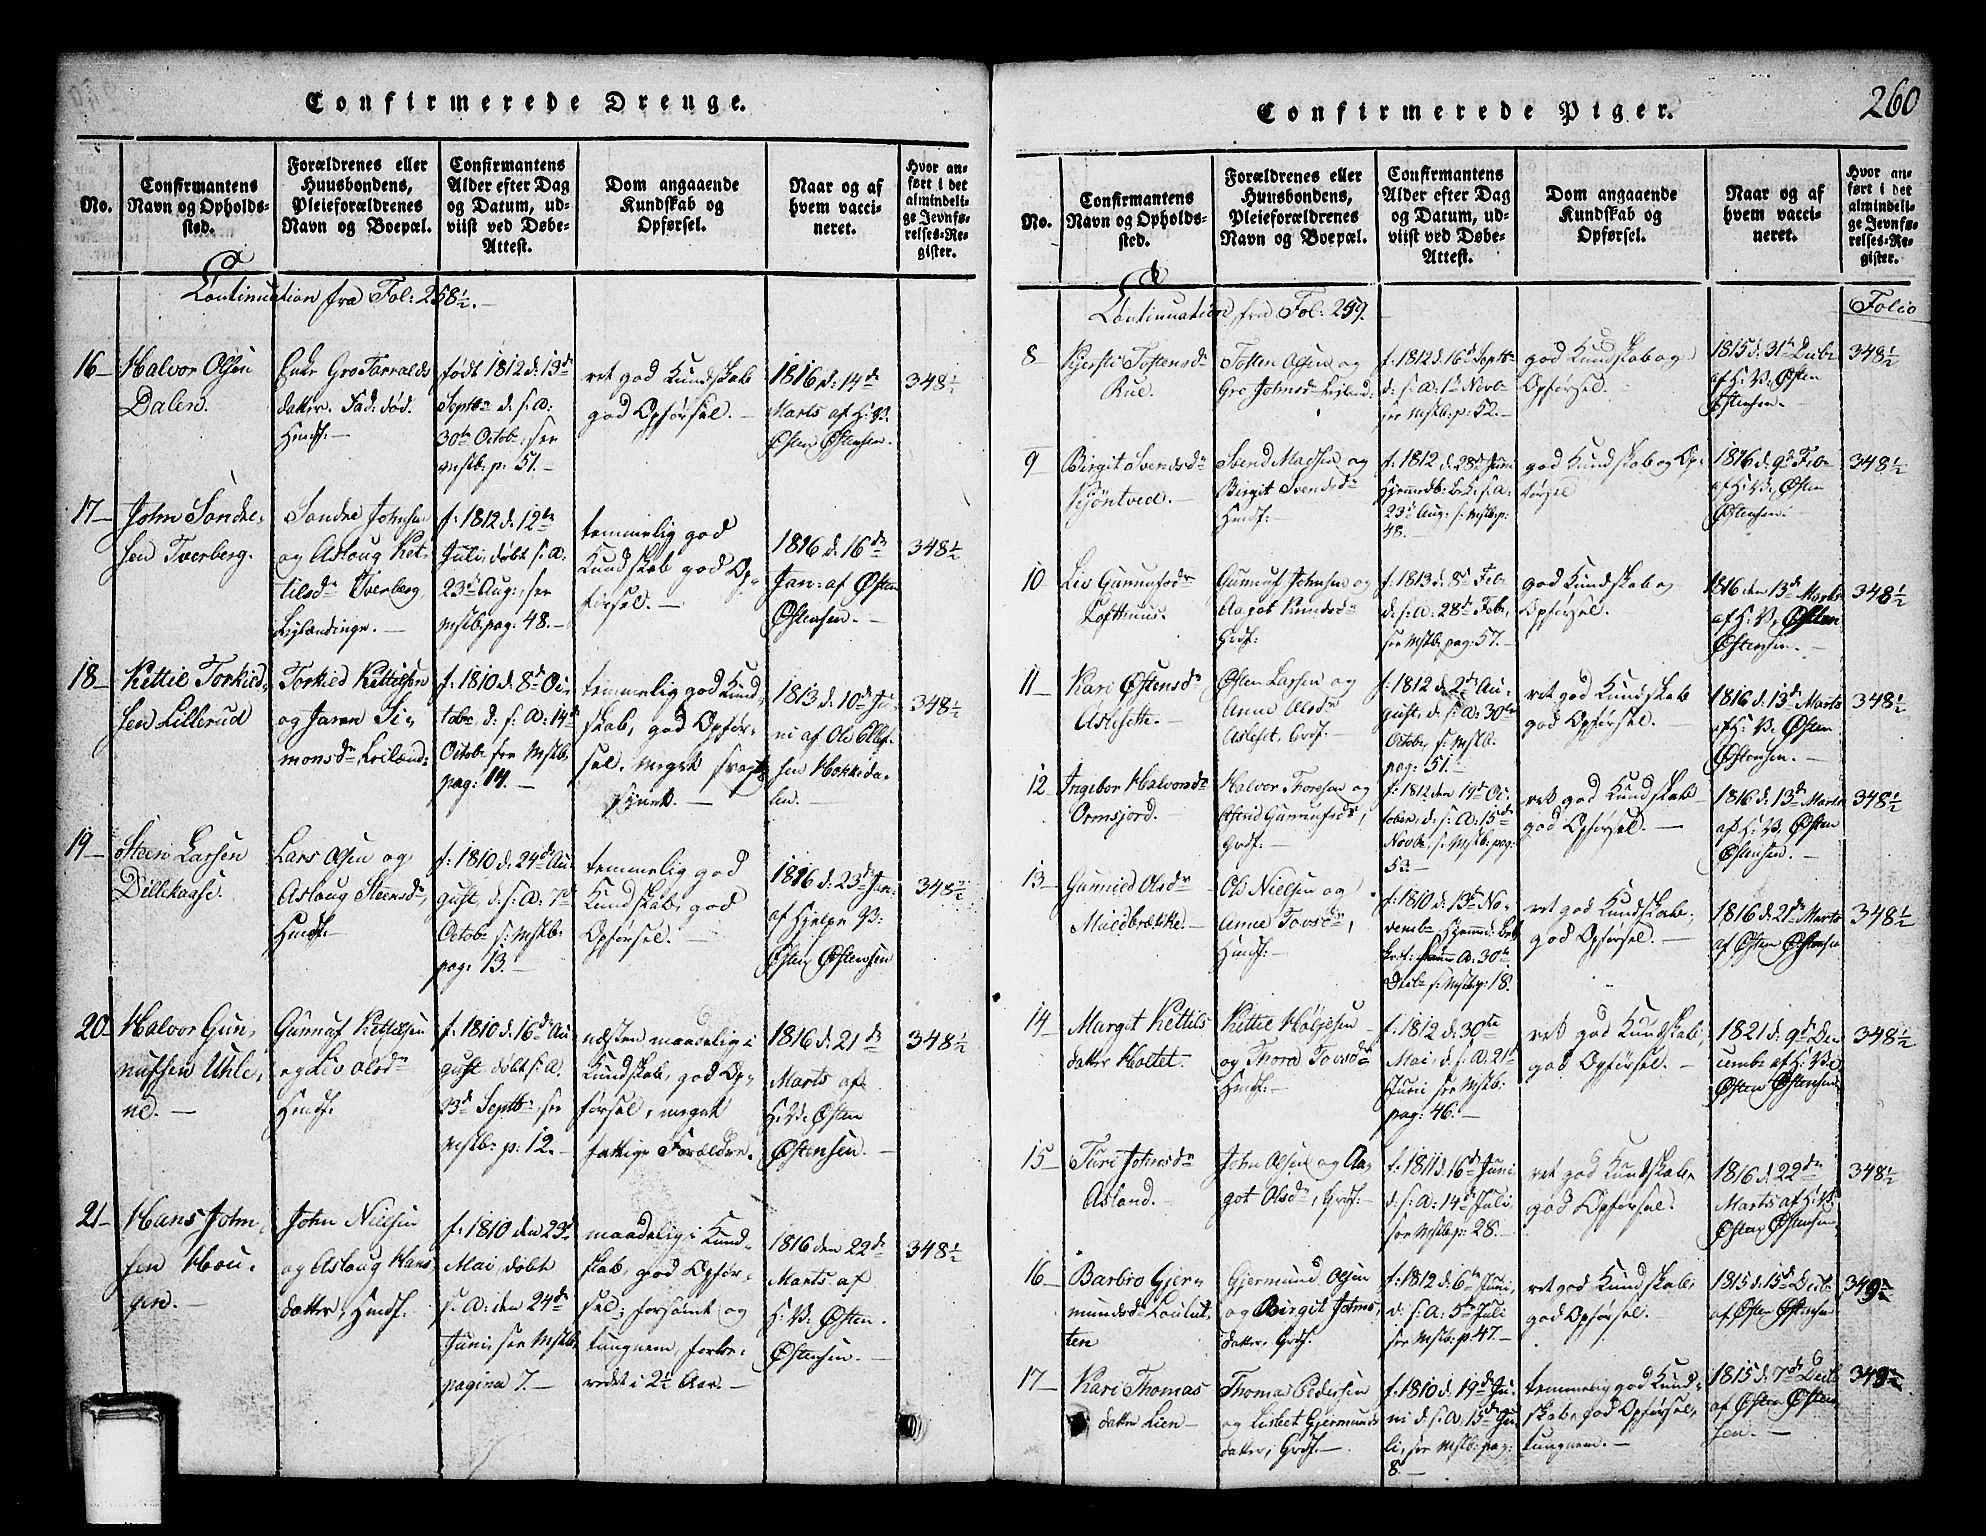 Confirmerede Drenge.
No.
Confirmantens
Navn og Opholds-
sted.
Forældrenes eller
Huusbondens,
Pleieforældrenes
Navn og Boepæl.
Confirmantens
Alder efter Dag
og Datum, ud-
viist ved Døbe-
Attest.
Dom angaaende
Kundskab og
Opførsel.
Naar og af
hvem vacci-
neret.
Hvor an-
ført i det
almindeli-
ge Jevnfø-
relses-Re-
gister.
Continuation fra Fol: 258½.
16
Halvor Olsen
Dalen.
Enke Gro Tarralds
datter. Fad: død.
Hmdf.
født 1812 d. 13de
Septbr d. s: a:
30te Octobr, see
Mstb. p: 51.
ret god Kundskab
god Opførsel.
1816 d: 14de
Marts af H: V:
Østen Østensen.
348½
17
John Sondre-
sen Tverberg.
Sondre Johnsen
og Aslaug Ket-
tilsdr Tverberg,
f: 1812 d. 12te
Juli, døbt s: a:
23de Aug:, see
Mstb. pag: 48.
temmelig god
Kundskab god Op-
førsel.
1816 d. 16de
Jan: af Østen
Østensen.
348½
18
Kettil Torkild-
sen Lillerud
Torkild Kettilsen
og Jaren Si-
monsdr
f: 1810 d. 8de Oc-
tobr, d: s: a: 14de
Octobr see Mstb,
pag: 14.
temmelig god Kund-
skab, god Opfør-
sel. meget svagt
Synet.
1813 d. 10de Ju-
ni af Ole Ollef-
sen Hokkeda-
len.
348½
19
Steen Larsen
Dillekaase.
Lars Olsen og
Aslaug Steensdr,
Hmdf.
f: 1810 d: 24de Au-
gust, d: s: a: 7de
Octobr s: Mstb.
pag: 13.
temmelig god
Kundskab, god
Opførsel.
1816 d: 23de Jan:
af Hjelpr V:
Østen Østensen
348½
20
Halvor Gun-
nufsen Uhle-
Gunnuf Kettilsen
og Liv Olsdr
Hmdf.
f: 1810 d. 16de Au
gust døbt s: a.
23de Septbr see
Mstb: p: 12.
næsten maadelig i
Kundskab, god Op-
førsel, meget
fattige Forældre.
1816 d: 21de
Marts af
H: V: Østen
Østensen.
348½
21
Hans John-
sen Hou-
gen.
John Nielsen
og Aslaug Hans
datter, Hmdf.
f: 1810 den 23de
Mai, døbt
s: a: den 24de
Juni, see Mstb,
pagina 7.
maadelig i Kund-
skab, god Opfør-
sel; forsømt og
tungnem, forbe-
redet i 2½ Aar.
1816 den 22de
Marts af
H: V: Østen
Østensen.
348½
260
Confirmerede Piger.
No.
Confirmantens
Navn og Opholds-
sted.
Forældrenes eller
Huusbondens,
Pleieforældrenes
Navn og Boepæl.
Confirmantens
Alder efter Dag
og Datum, ud-
viist ved Døbe-
Attest.
Dom angaaende
Kundskab og
Opførsel.
Naar og af
hvem vacci-
neret.
Hvor an-
ført i det
almindeli-
ge Jevnfø-
relses-Re-
gister.
Continuation fra Fol: 259.
Folio
8
Kjersti Tostensdr
Rue.
Tosten Olsen og
Gro Johnsdr
f: 1812 d. 16de Septbr
d. s: a: 1ste Novbr
see Mstb: p: 52.
god Kundskab og
Opførsel.
1815 d. 31te Decbr
af H: V: Østen
Østensen.
348½
9
Birgit Svendsdr
Kjøntved.
Svend Madsen og
Birgit Svendsdr
Hmdf:
f: 1812 d. 28de Juni
s: a:
23de Aug: s: Mstb: p:
48.
god Kundskab og Op-
førsel
1816 d. 9de Feb
af H: V:, Østen
Østensen.
348½
10
Liv Gunnufsdr
Lofthuus.
Gunnuf Johnsen og
Aagot Knudsdr
Grdf:
f: 1813 d: 8de Feb
d: s: a: 28de Febr,
see Mstb pag: 57.
god Kundskab og
Opførsel.
1816 den 13de Marts
af H: V:, Østen
Østensen.
348½
11
Kari Østensdr
Aslesette.
Østen Larsen og
Anne Olsdr
Asleset, Grdf:
f: 1812 d. 2de Au-
gust, d. s: a: 30te
Octobr, s: Mstb.
pag: 51.
ret god Kundskab
god Opførsel.
1816 d. 13de Marts
af H: V: Østen
Østensen.
348½
12
Ingebor Halvorsdr
Ormsjord.
Halvor Thoresen og
Astrid Gunnufsdr,
Grdf:
f: 1812 den 19de Oc-
tober, d: s: a: 15de
Novbr, s: Mstb: pag:
53.
ret god Kundskab
god Opførsel.
1816 d. 13de Marts
af H: V: Østen
Østensen.
348½
13
Gunnild Olsdr
Maidbrække.
Ole Nielsen og
Anne Tovsdr,
Hmdf:
f: 1810 d. 13de No-
vembr,
a: 30te
Decbr s: Mstb p: 18.
ret god Kundskab,
god Opførsel.
1816 d. 21de Marts
af Østen Østensen
348½
14
Margit Kettils
datter Holtet.
Kettil Holjesen
og Thora Tovsdr
Hmdf:
f: 1812 d. 30te
Mai d: s: a: 21de
Juni see Mstb:
pag: 46.
ret god Kundskab,
god Opførsel.
1821 d. 9de De-
cembr af H: V:
Østen Østensen
348½
15
Turi Johnsdr
Asland.
John Olsen og Aa-
got Olsdr, Grdf:
f: 1811 d. 16de Juni,
d: s: a: 14de Juli,
see Mstb p: 28.
ret god Kundskab,
god Opførsel.
1816 d. 22de
Marts af H: V:
Østen Østensen
348½
16
Barbro Gjer-
mundsdr
ten
Gjermund Olsen
og Birgit Johns-
datter, Grdf.
f: 1812 d. 6te Juni,
d: s: a: 5te Juli
see Mstb: p. 47.
ret god Kundskab,
god Opførsel.
1815 d. 15de Decbr
af Østen Østensen
349
17
Kari Thomas
datter Lien
Thomas Pedersen
og Lisbet Gjermunds
datter, Grdf:
f: 1810 d. 19de Ju-
ni d. s: a: 15de Ju-
li, see Mstb: pag:
8.
temmelig god Kund-
skab, god Opførsel,
tungnem.
1815 d. 7de Decbr
af Østen Østen
sen.
349